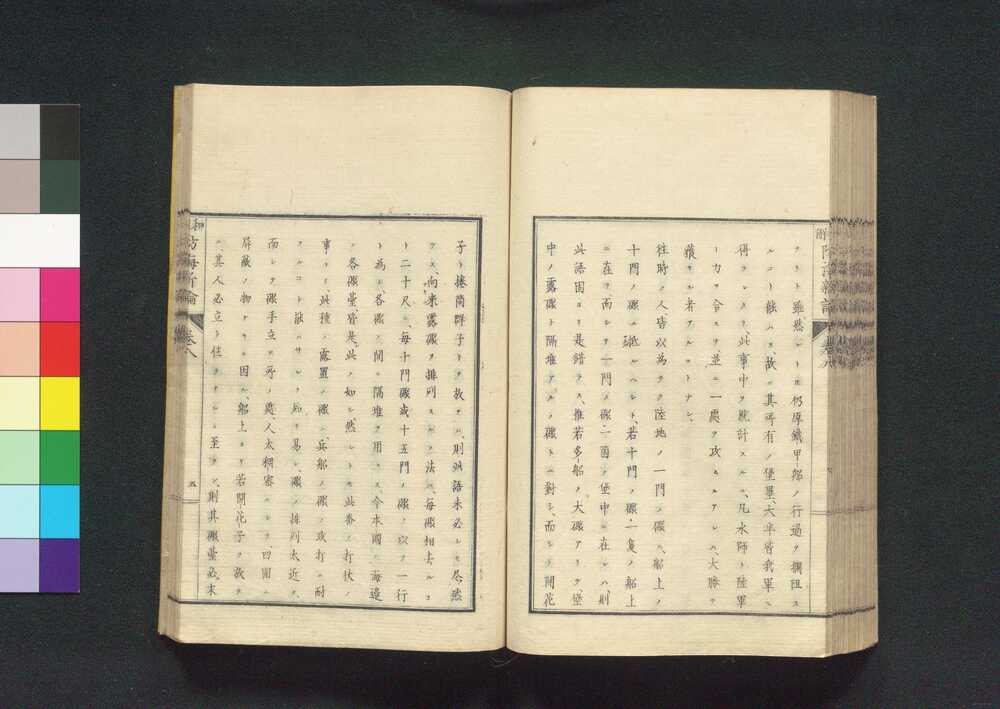 ヲクト雖、然レトモ仍厚鐵甲船ノ行過ヲ攔阻ス
ルコト能ハス、故ニ其所有ノ堡壘、大半皆我軍ニ
得ラレタリ、此事中ヲ統計スルニ、凡水師ト陸軍
ト力ヲ合スヲ並ニ一處ヲ攻ムルアレハ、大勝ヲ
獲サル者アルコトナシ、
往時ノ人、皆以為ラク陸地ノ一門ノ礮ハ、船上ノ
十門ノ礮ニ抵ルヘシト、若十門ノ礮、一隻ノ船上
ニ在ヲ而シテ一門ノ礮、一箇ノ堡中ニ在レハ、則
此語固ヨリ是錯ラス、惟若多船ノ大礮アリテ、堡
中ノ露礮ト隔堆アルノ礮トニ對シ、而シテ開花
子ト捲筒群子トヲ放ツハ、則此語未必シモ尽ク然
ラス、向来露礮ヲ排列スルノ法ハ、毎礮相去ルコ
ト二十尺ニ、毎十門礮或十五門ノ礮ノ以テ一行
ト為シ、各礮ノ間ニ隔堆ヲ用ス、今本國ノ海邉
ノ各礮臺、皆是此ノ如シ然レトモ此番ノ打仗ノ
事ヲ此種ノ露置ノ礮ハ、兵船ノ礮ノ攻打ニ耐
フルコト能ハサルヲ知リ易シ、礮ノ排列太近ク
而シテ礮手立ツ所ノ處、人太稠密ニシテ、四圍
屏蔽ノ物ナキニ因ル、船上ヨリ若開花子ヲ放ツ
ハ、其人必立ト住ラサルニ至ラン、則其礮臺必末
防海新論 巻八
五